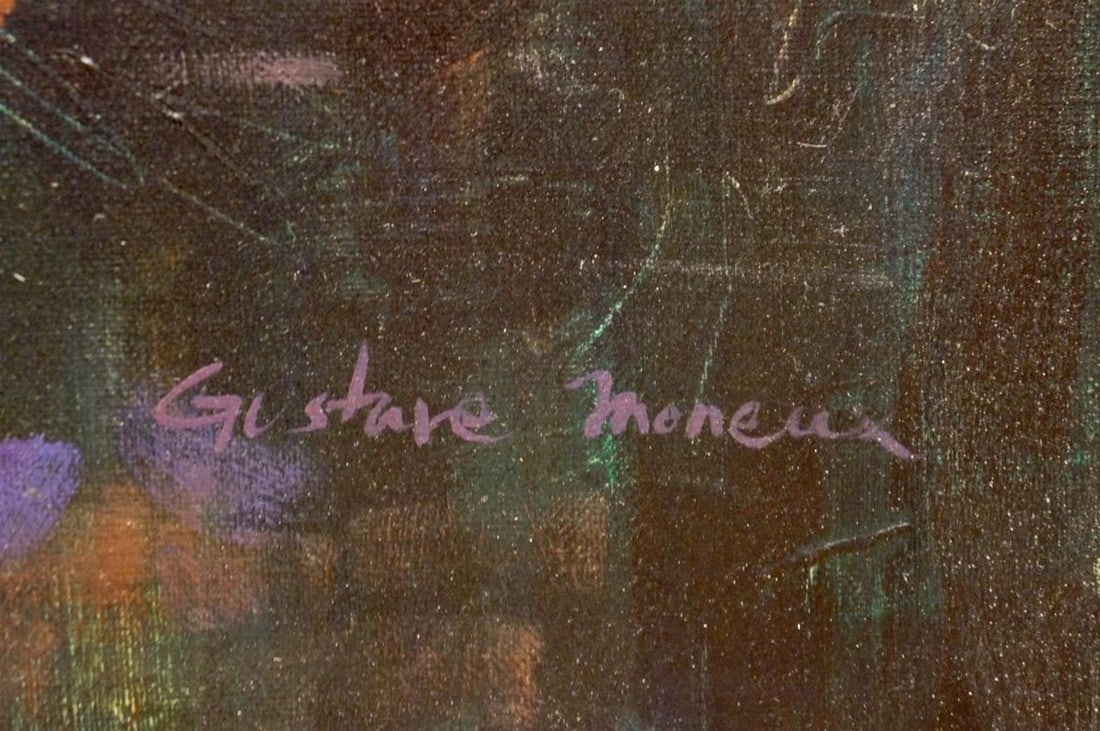 Gustave Moneux